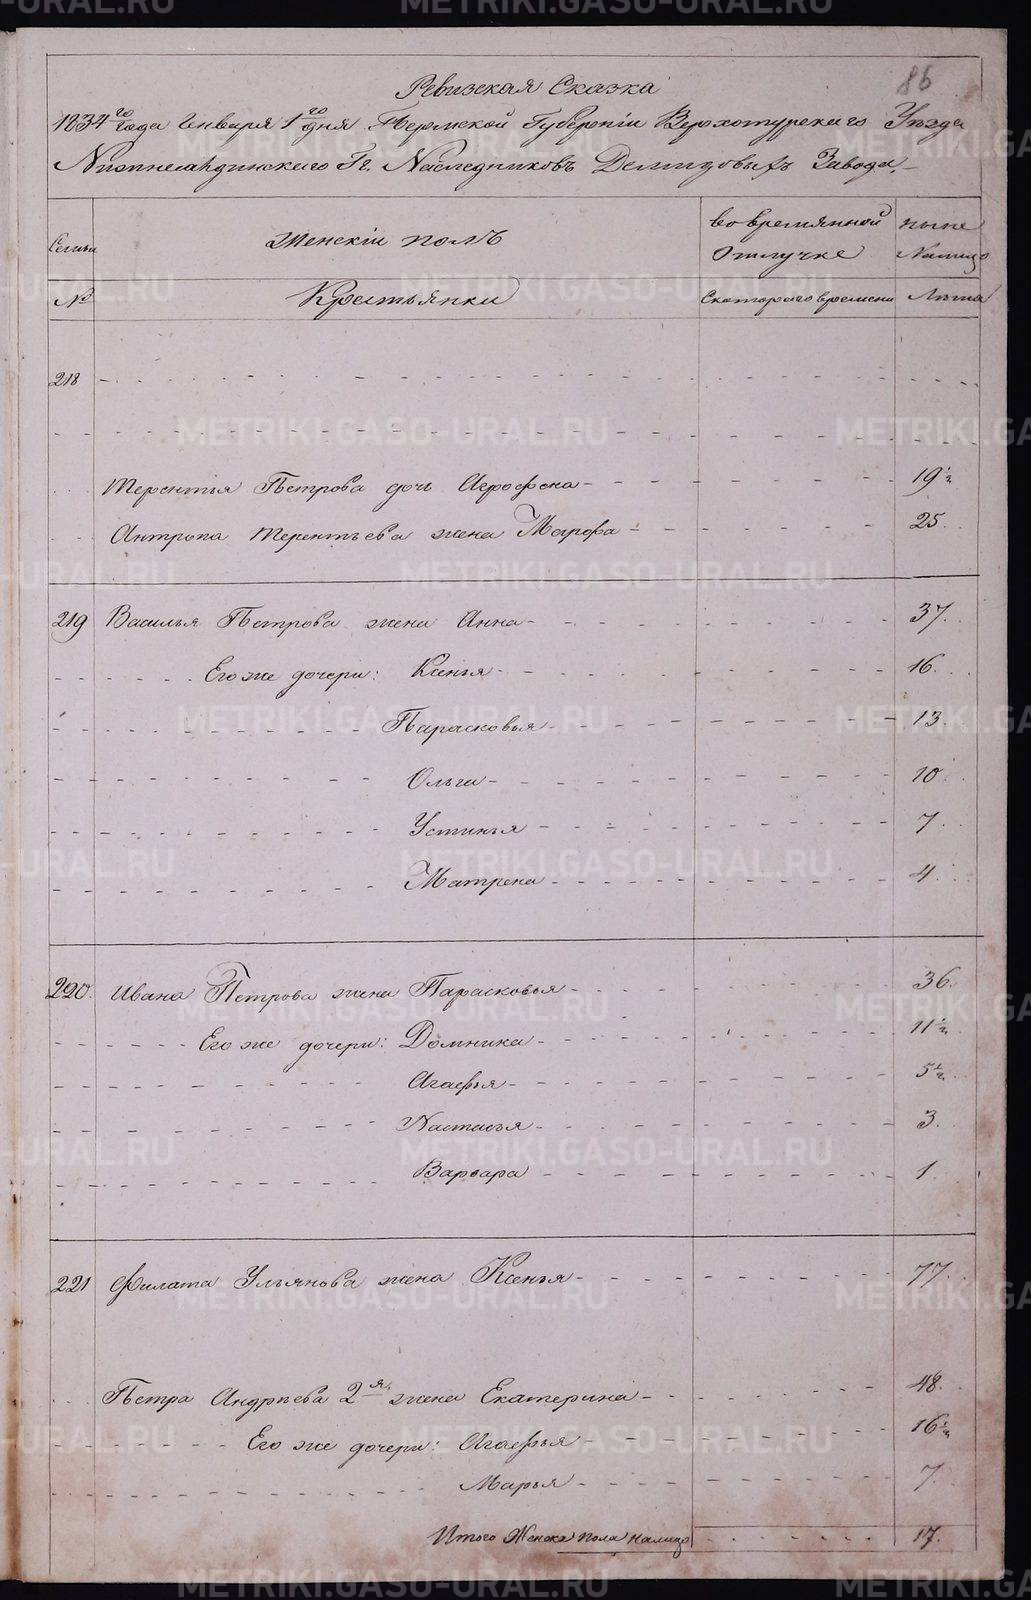 86
Ревизская Сказка
1834го года Января 1го дня Пермской Губернии Верхотурского Уезда
Нижнесалдинского Гг. Наследниковъ Демидовыхъ Завода
Семьи
Женскiй полъ
во времянной отлучке
ныне Налицо
№
Крестьянки
Скотораго времени
Лета
218
Терентья Петрова дочь Агрофена 19 ½
Антропа Терентьева жена Марфа 25.
219 Василья Петрова жена Анна 37.
Его же дочери: Ксенья 16.
Парасковья 13.
Ольга 10.
Устинья 7.
Матрена 4
220. Ивана Петрова жена Парасковья 36.
Его же дочери: Домника 11 ½
Агафья 5 ½
Настасья 3.
Варвара 1.
221 Филата Ульянова жена Ксенья 77.
Петра Андреева 2я жена Екатерина 48.
Его же дочери: Агафья 16 ½
Марья 7.
Итого Женска пола налицо 17.
METRIKI.GASO-URAL.RU